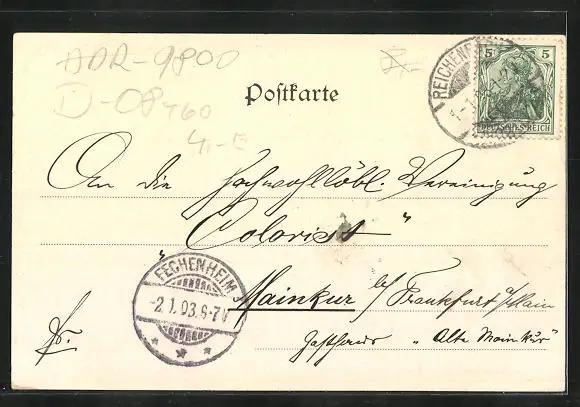 ADR-9800
D-08460
4,-E
Postkarte
REICHENB
5 5
DEUTSCHES REICH
An die Hochwohllöbl. Vereinigung
"Colorist"
FECHENHEIM
-2.1.03.6-7V
Mainkur bei Frankfurt a/Main
Fr.
Gasthaus „Alte Mainkur"